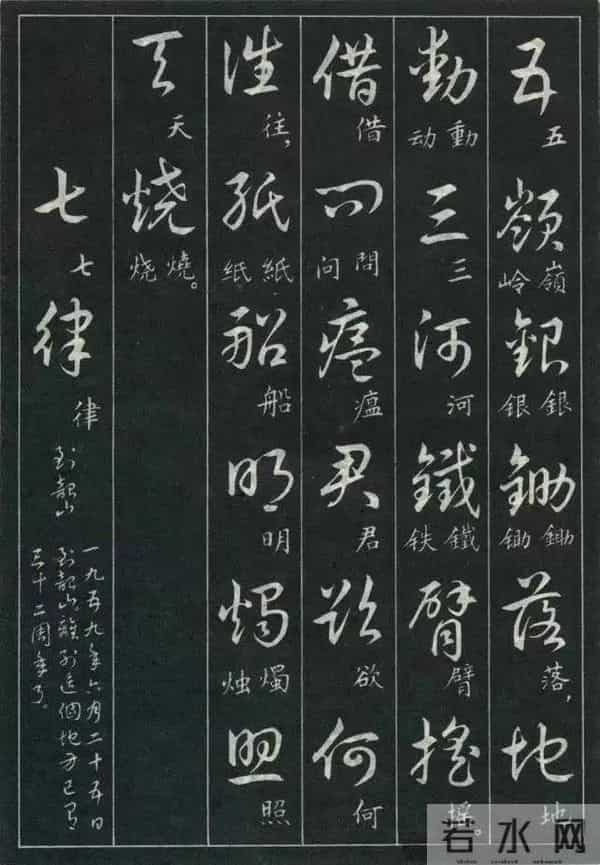 五 五 嶺 嶺岭 銀 銀银 鋤 鋤锄 落 落， 地 地
動 動动 三 三 河 河 鐵 鐵铁 臂 臂 搖 摇。
借 借 問 問问 瘟 瘟 君 君 欲 欲 何 何
往 往， 紙 紙纸 船 船 明 明 燭 燭烛 照 照
天 天 燒 燒烧。
七 七 律 律 到韶山
一九五九年六月二十五日
到韶山離别這個地方已有
三十二周年了。
若水网